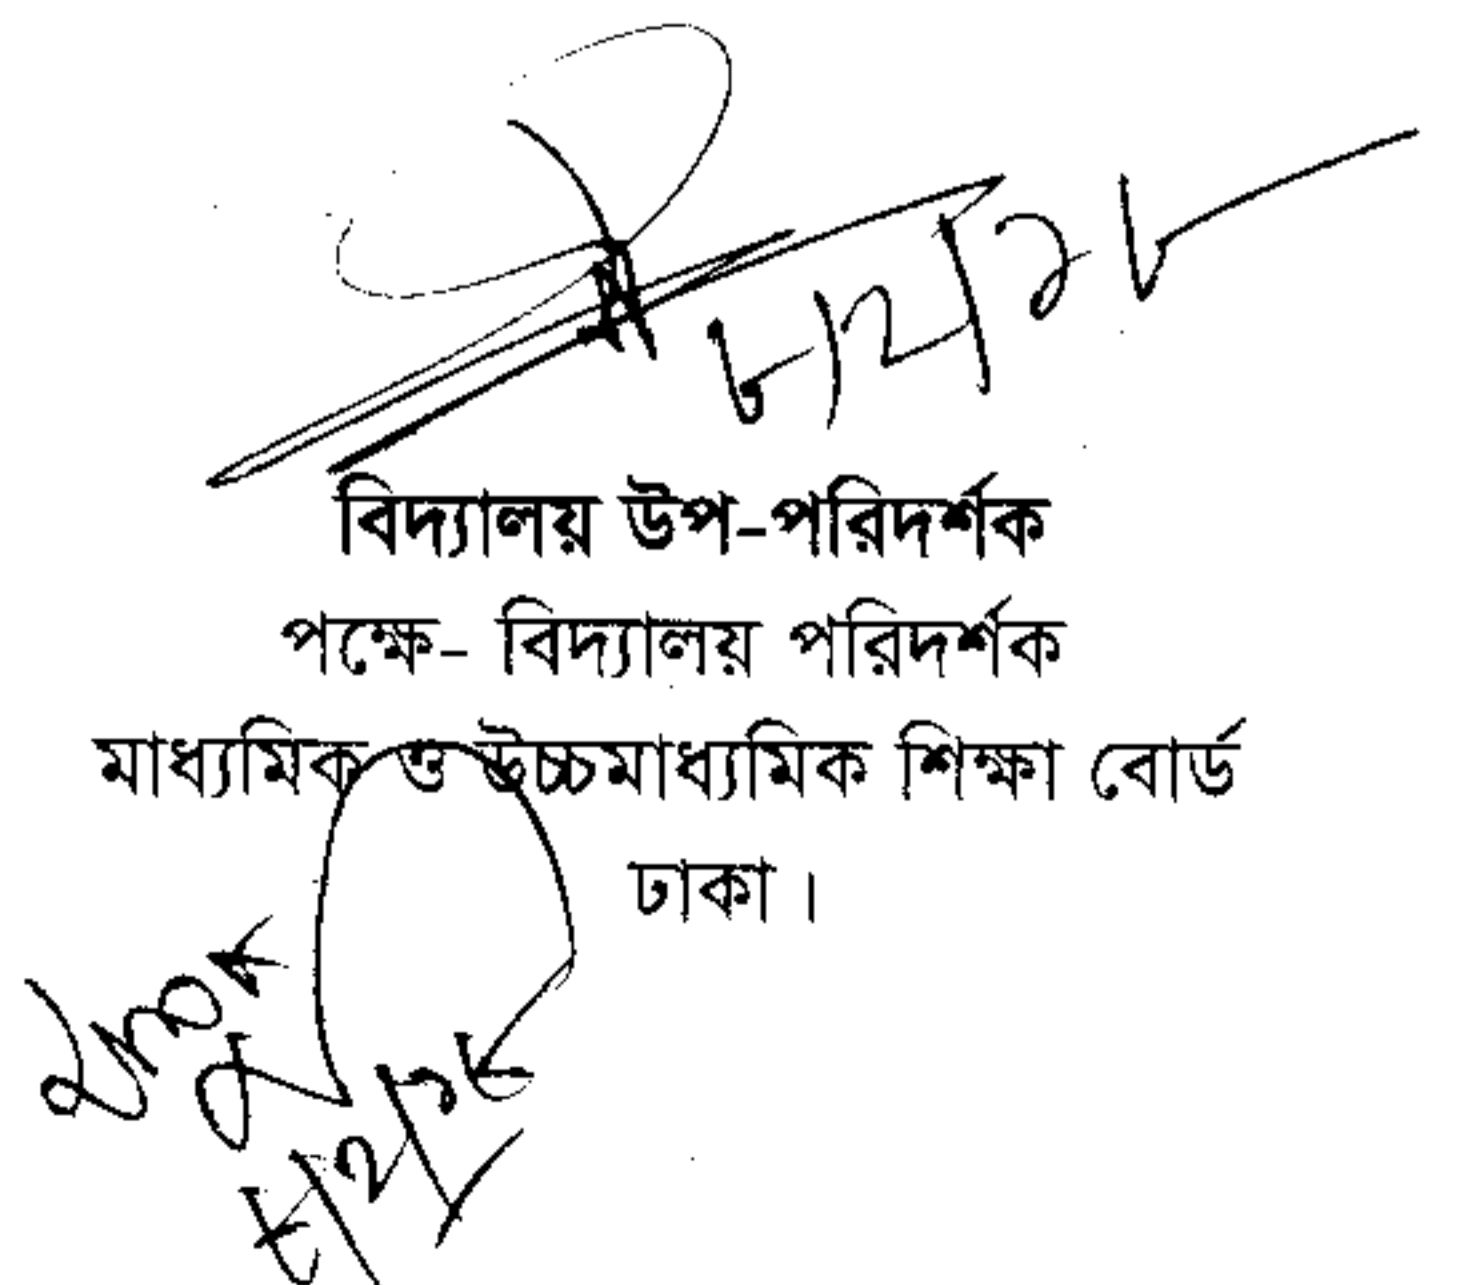 ৮/২/১৮
বিদ্যালয় উপ-পরিদর্শক
পক্ষে- বিদ্যালয় পরিদর্শক
মাধ্যমিক ও উচ্চমাধ্যমিক শিক্ষা বোর্ড
ঢাকা।
৮/২/১৮